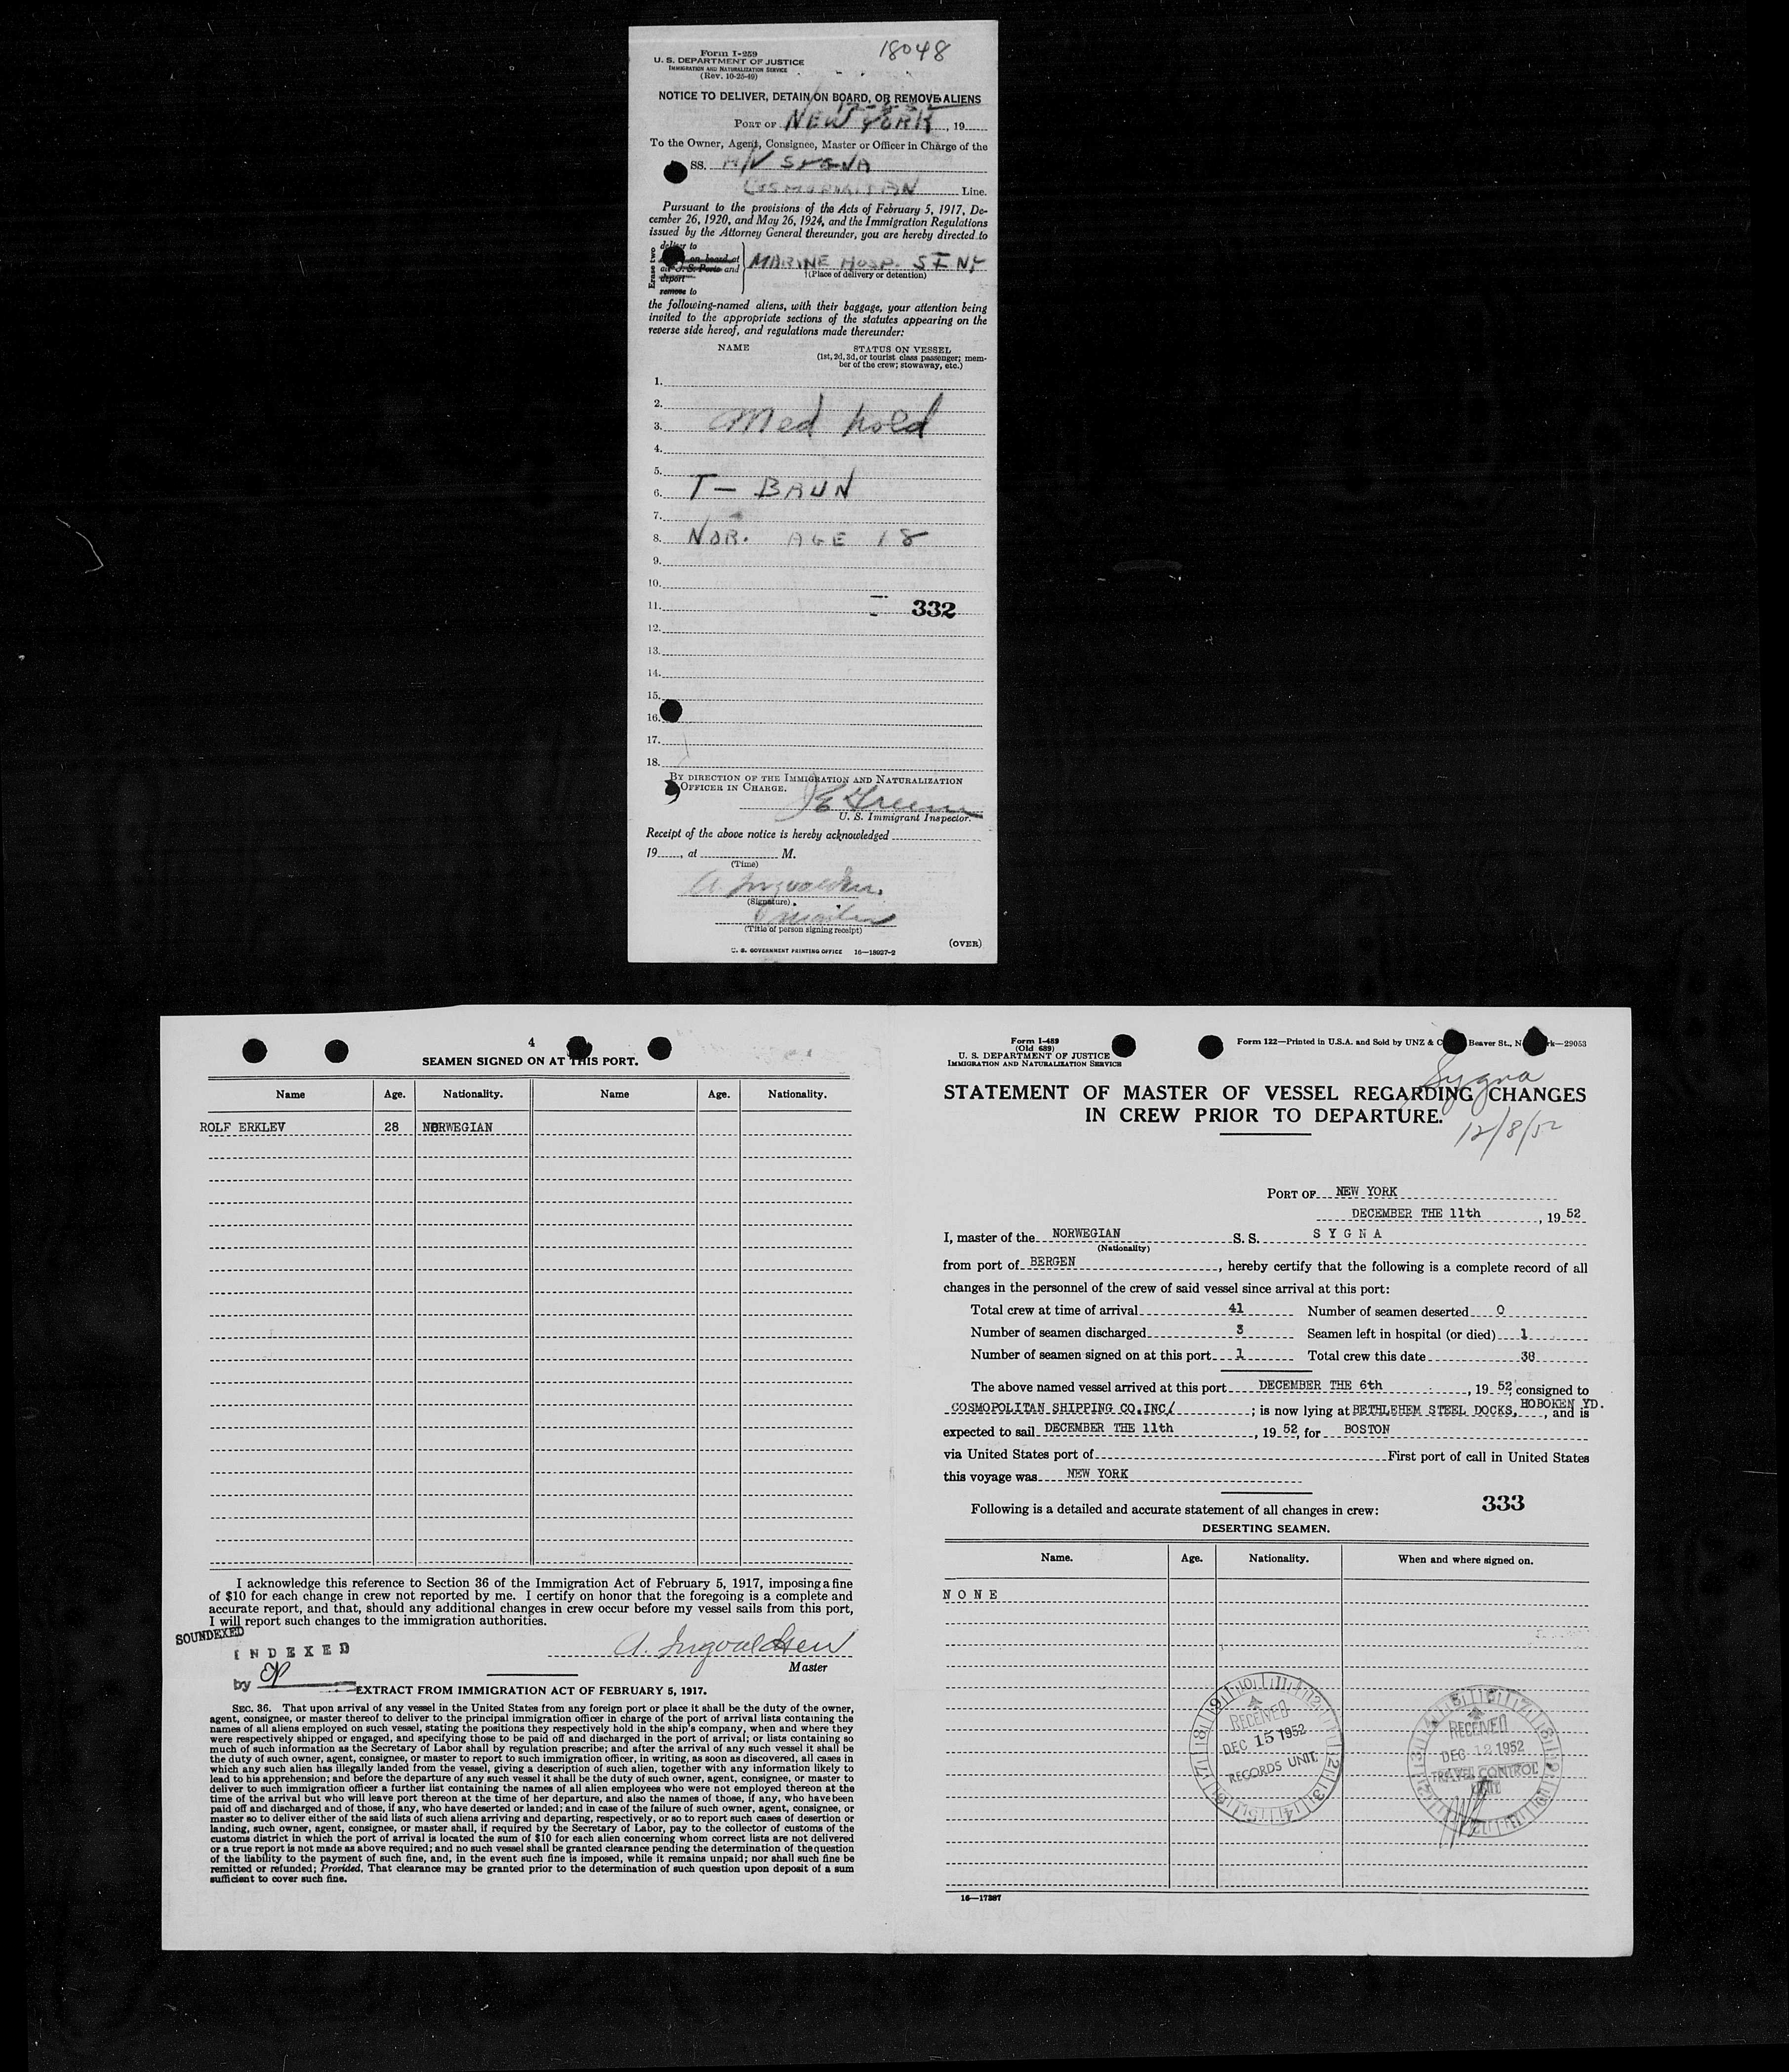 18048
Form I-259
U. S. DEPARTMENT OF JUSTICE
IMMIGRATION AND NATURALIZATION SERVICE
(Rev. 10-25-49)
NOTICE TO DELIVER, DETAIN ON BOARD, OR REMOVE ALIENS
PORT OF NEW YORK, 19
To the Owner, Agent, Consignee, Master or Officer in Charge of the
SS. M/V SYGNA
COSMOPOLITAN Line.
Pursuant to the provisions of the Acts of February 5, 1917, De-
cember 26, 1920, and May 26, 1924, and the Immigration Regulations
issued by the Attorney General thereunder, you are hereby directed to
Erase two
deliver to
on board at
all U. S. Ports and
deport
remove to
MARINE HOSP. S I NY
(Place of delivery or detention)
the following-named aliens, with their baggage, your attention being
invited to the appropriate sections of the statutes appearing on the
reverse side hereof, and regulations made thereunder:
NAME STATUS ON VESSEL
(1st, 2d, 3d, or tourist class passenger; mem-
ber of the crew; stowaway, etc.)
1.
2.
3. Med hold
4.
5.
6. T — BRUN
7.
8. NOR. AGE 18
9.
10.
11. 332
12.
13.
14.
15.
16.
17.
18.
BY DIRECTION OF THE IMMIGRATION AND NATURALIZATION
OFFICER IN CHARGE.
U. S. Immigrant Inspector.
Receipt of the above notice is hereby acknowledged
19, at M.
(Time)
A. Ingvaldsen.
(Signature)
(Title of person signing receipt)
(OVER)
U. S. GOVERNMENT PRINTING OFFICE 16—18927-2
4
SEAMEN SIGNED ON AT THIS PORT.
Name Age. Nationality. Name Age. Nationality.
ROLF ERKLEV 28 NORWEGIAN
I acknowledge this reference to Section 36 of the Immigration Act of February 5, 1917, imposing a fine
of $10 for each change in crew not reported by me. I certify on honor that the foregoing is a complete and
accurate report, and that, should any additional changes in crew occur before my vessel sails from this port,
I will report such changes to the immigration authorities.
SOUNDEXED
INDEXED
by
A. Ingvaldsen
Master
EXTRACT FROM IMMIGRATION ACT OF FEBRUARY 5, 1917.
SEC. 36. That upon arrival of any vessel in the United States from any foreign port or place it shall be the duty of the owner,
agent, consignee, or master thereof to deliver to the principal immigration officer in charge of the port of arrival lists containing the
names of all aliens employed on such vessel, stating the positions they respectively hold in the ship's company, when and where they
were respectively shipped or engaged, and specifying those to be paid off and discharged in the port of arrival; or lists containing so
much of such information as the Secretary of Labor shall by regulation prescribe; and after the arrival of any such vessel it shall be
the duty of such owner, agent, consignee, or master to report to such immigration officer, in writing, as soon as discovered, all cases in
which any such alien has illegally landed from the vessel, giving a description of such alien, together with any information likely to
lead to his apprehension; and before the departure of any such vessel it shall be the duty of such owner, agent, consignee, or master to
deliver to such immigration officer a further list containing the names of all alien employees who were not employed thereon at the
time of the arrival but who will leave port thereon at the time of her departure, and also the names of those, if any, who have been
paid off and discharged and of those, if any, who have deserted or landed; and in case of the failure of such owner, agent, consignee, or
master so to deliver either of the said lists of such aliens arriving and departing, respectively, or so to report such cases of desertion or
landing, such owner, agent, consignee, or master shall, if required by the Secretary of Labor, pay to the collector of customs of the
customs district in which the port of arrival is located the sum of $10 for each alien concerning whom correct lists are not delivered
or a true report is not made as above required; and no such vessel shall be granted clearance pending the determination of the question
of the liability to the payment of such fine, and, in the event such fine is imposed, while it remains unpaid; nor shall such fine be
remitted or refunded; Provided, That clearance may be granted prior to the determination of such question upon deposit of a sum
sufficient to cover such fine.
Form I-489
(Old 689)
U. S. DEPARTMENT OF JUSTICE
IMMIGRATION AND NATURALIZATION SERVICE
Form 122—Printed in U.S.A. and Sold by UNZ & C Beaver St., N k—29053
Sygna
STATEMENT OF MASTER OF VESSEL REGARDING CHANGES
IN CREW PRIOR TO DEPARTURE.
12/8/52
PORT OF NEW YORK
DECEMBER THE 11th, 19 52
I, master of the NORWEGIAN S. S. S Y G N A
(Nationality)
from port of BERGEN, hereby certify that the following is a complete record of all
changes in the personnel of the crew of said vessel since arrival at this port:
Total crew at time of arrival 41 Number of seamen deserted 0
Number of seamen discharged 3 Seamen left in hospital (or died) 1
Number of seamen signed on at this port 1 Total crew this date 38
The above named vessel arrived at this port DECEMBER THE 6th, 19 52, consigned to
COSMOPOLITAN SHIPPING CO.INC/; is now lying at BETHLEHEM STEEL DOCKS, HOBOKEN YD., and is
expected to sail DECEMBER THE 11th, 19 52, for BOSTON
via United States port of First port of call in United States
this voyage was NEW YORK
Following is a detailed and accurate statement of all changes in crew: 333
DESERTING SEAMEN.
Name. Age. Nationality. When and where signed on.
N O N E
RECEIVED
DEC 15 1952
RECORDS UNIT
RECEIVED
DEC 12 1952
TRAVEL CONTROL
UNIT
16—17387